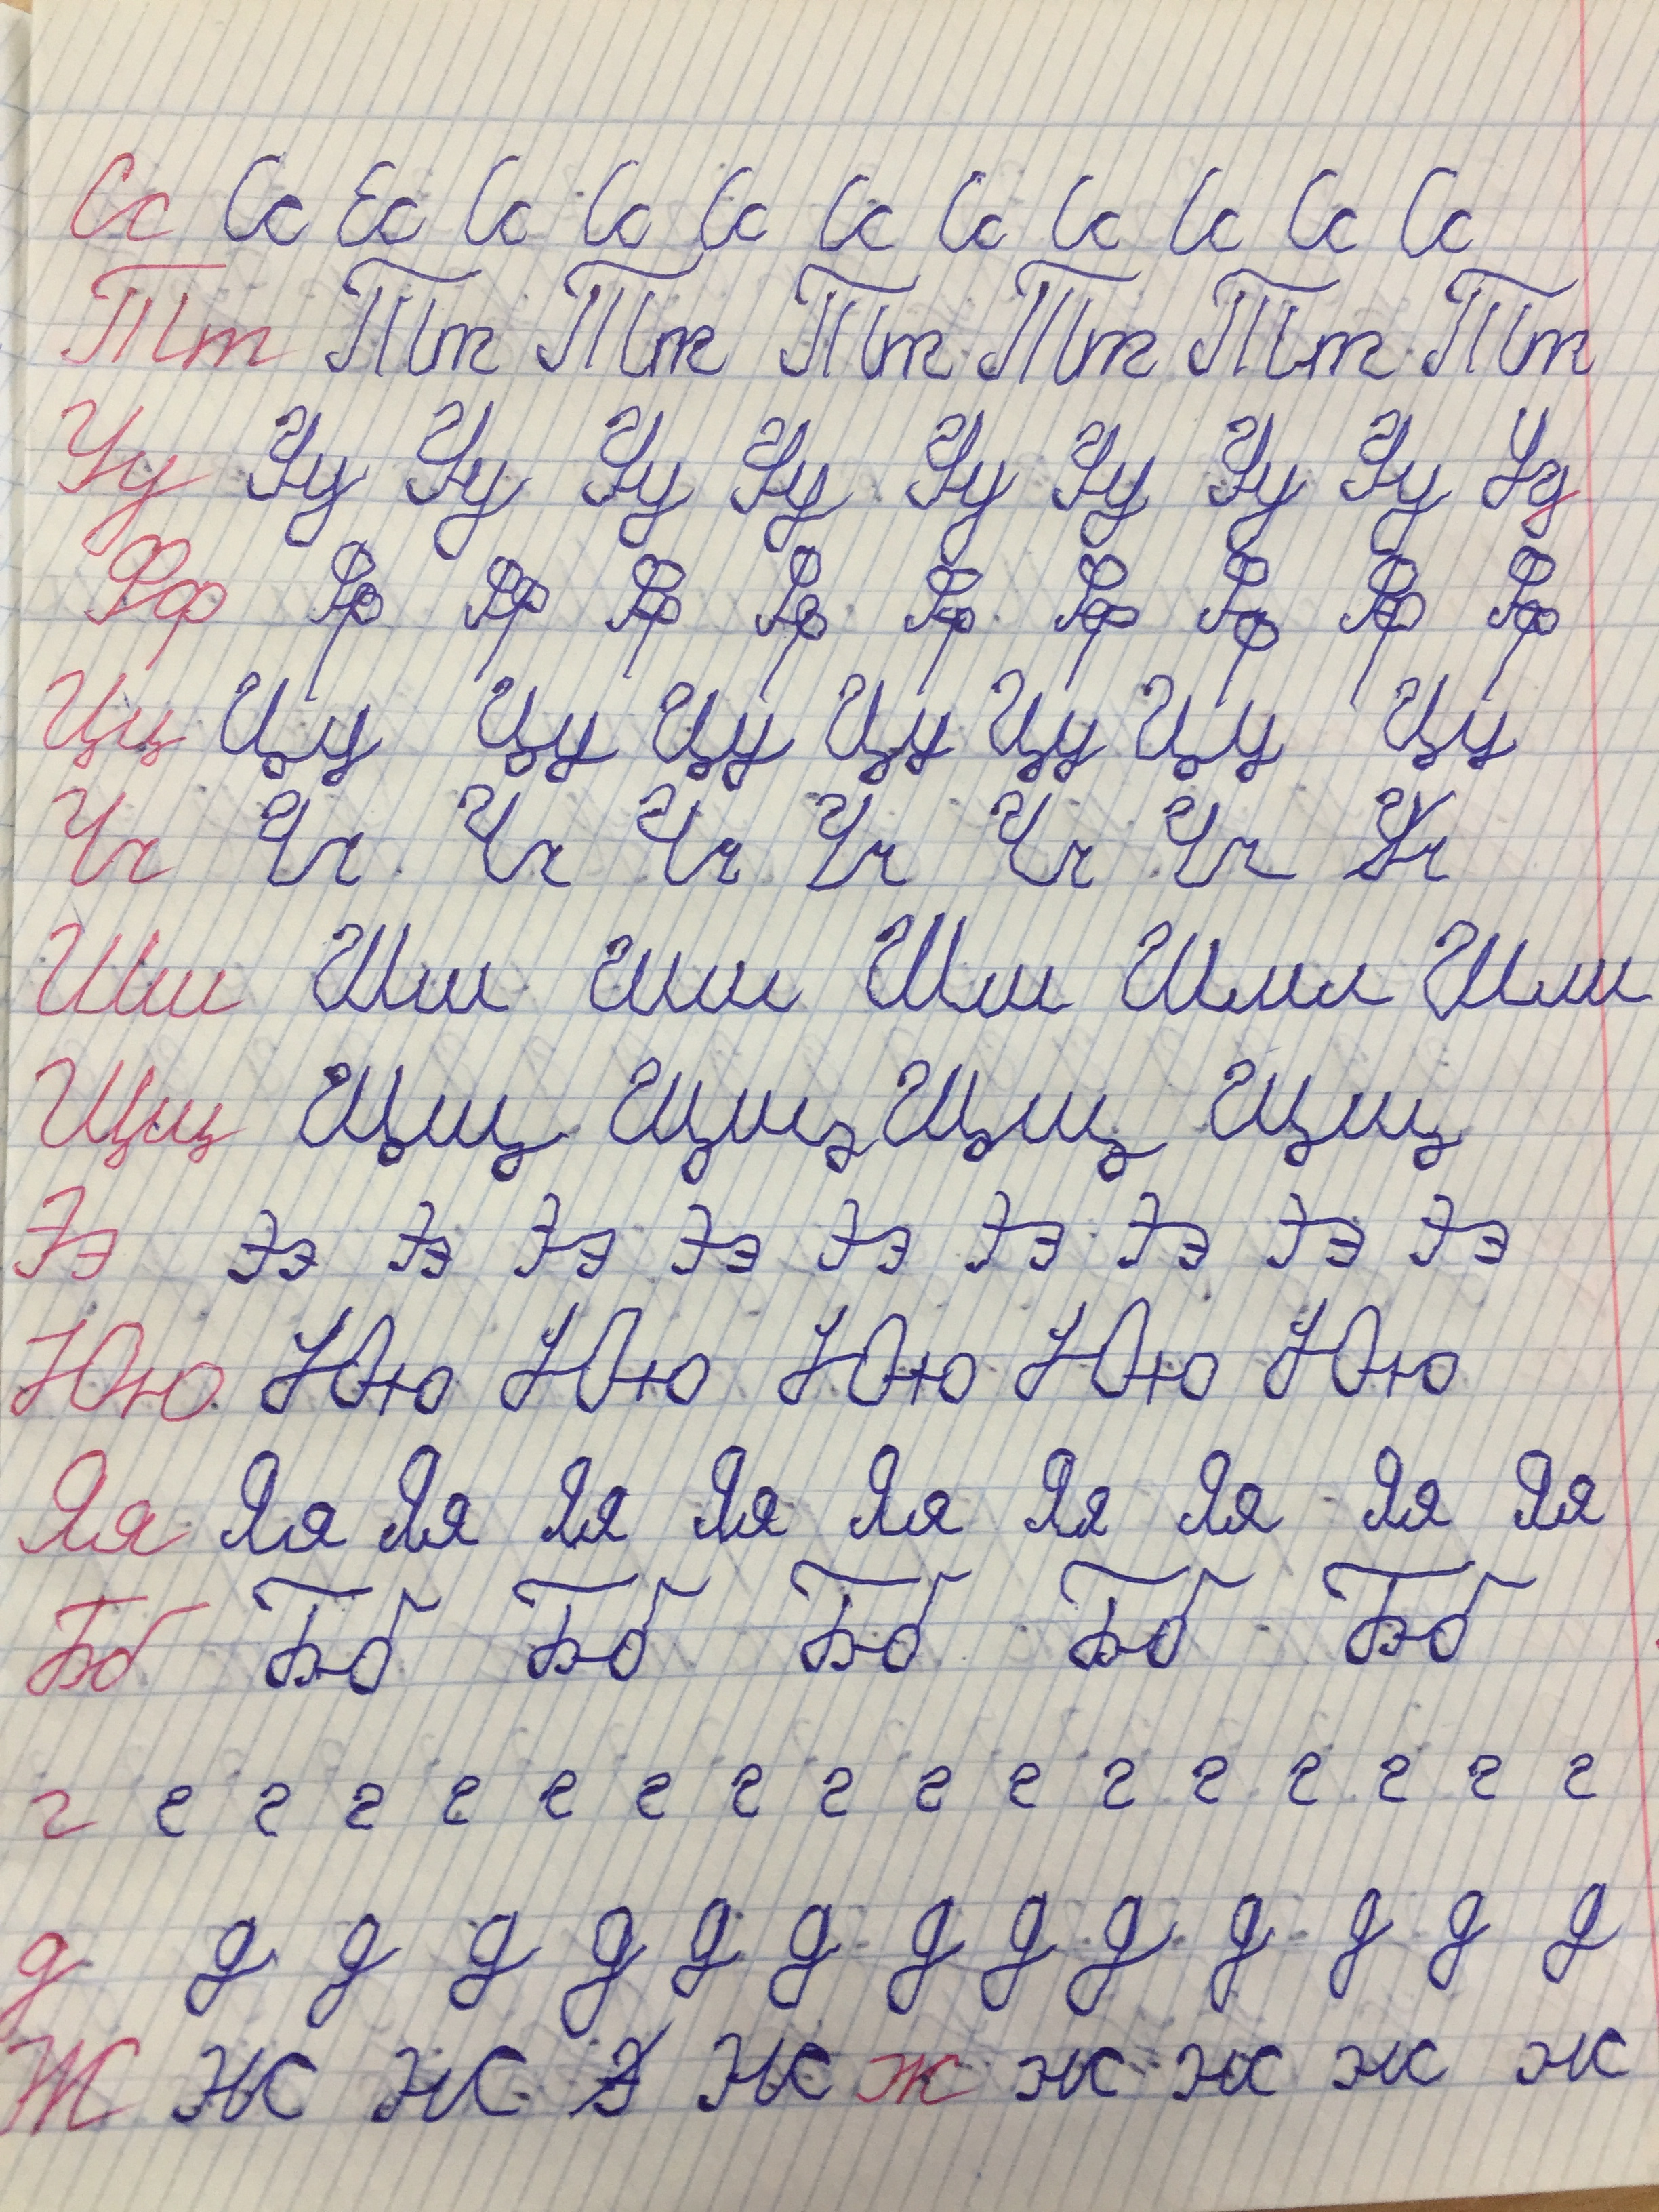 Сс Сс Ес Сс Сс Сс Сс Сс Сс Сс Сс Сс
Тт Тт Тт Тт Тт Тт Тт
Уу Уу Уу Уу Уу Уу Уу Уу Уу Уу
Фф Фф Фф Фф Фф Фф Фф Фф Фф Фф
Цц Цц Цц Цц Цц Цц Цц Цц
Чч Чч Чч Чч Чч Чч Чч Чч
Шш Шш Шш Шш Шш Шш
Щщ Щщ Щщ Щщ Щщ
Ээ Ээ Ээ Ээ Ээ Ээ Ээ Ээ Ээ Ээ
Юю Юю Юю Юю Юю Юю
Яя Яя Яя Яя Яя Яя Яя Яя Яя Яя
Бб Бб Бб Бб Бб Бб
г г г г г г г г г г г г г г г г г
д д д д д д д д д д д д д д
Ж ж ж ж ж ж ж ж ж